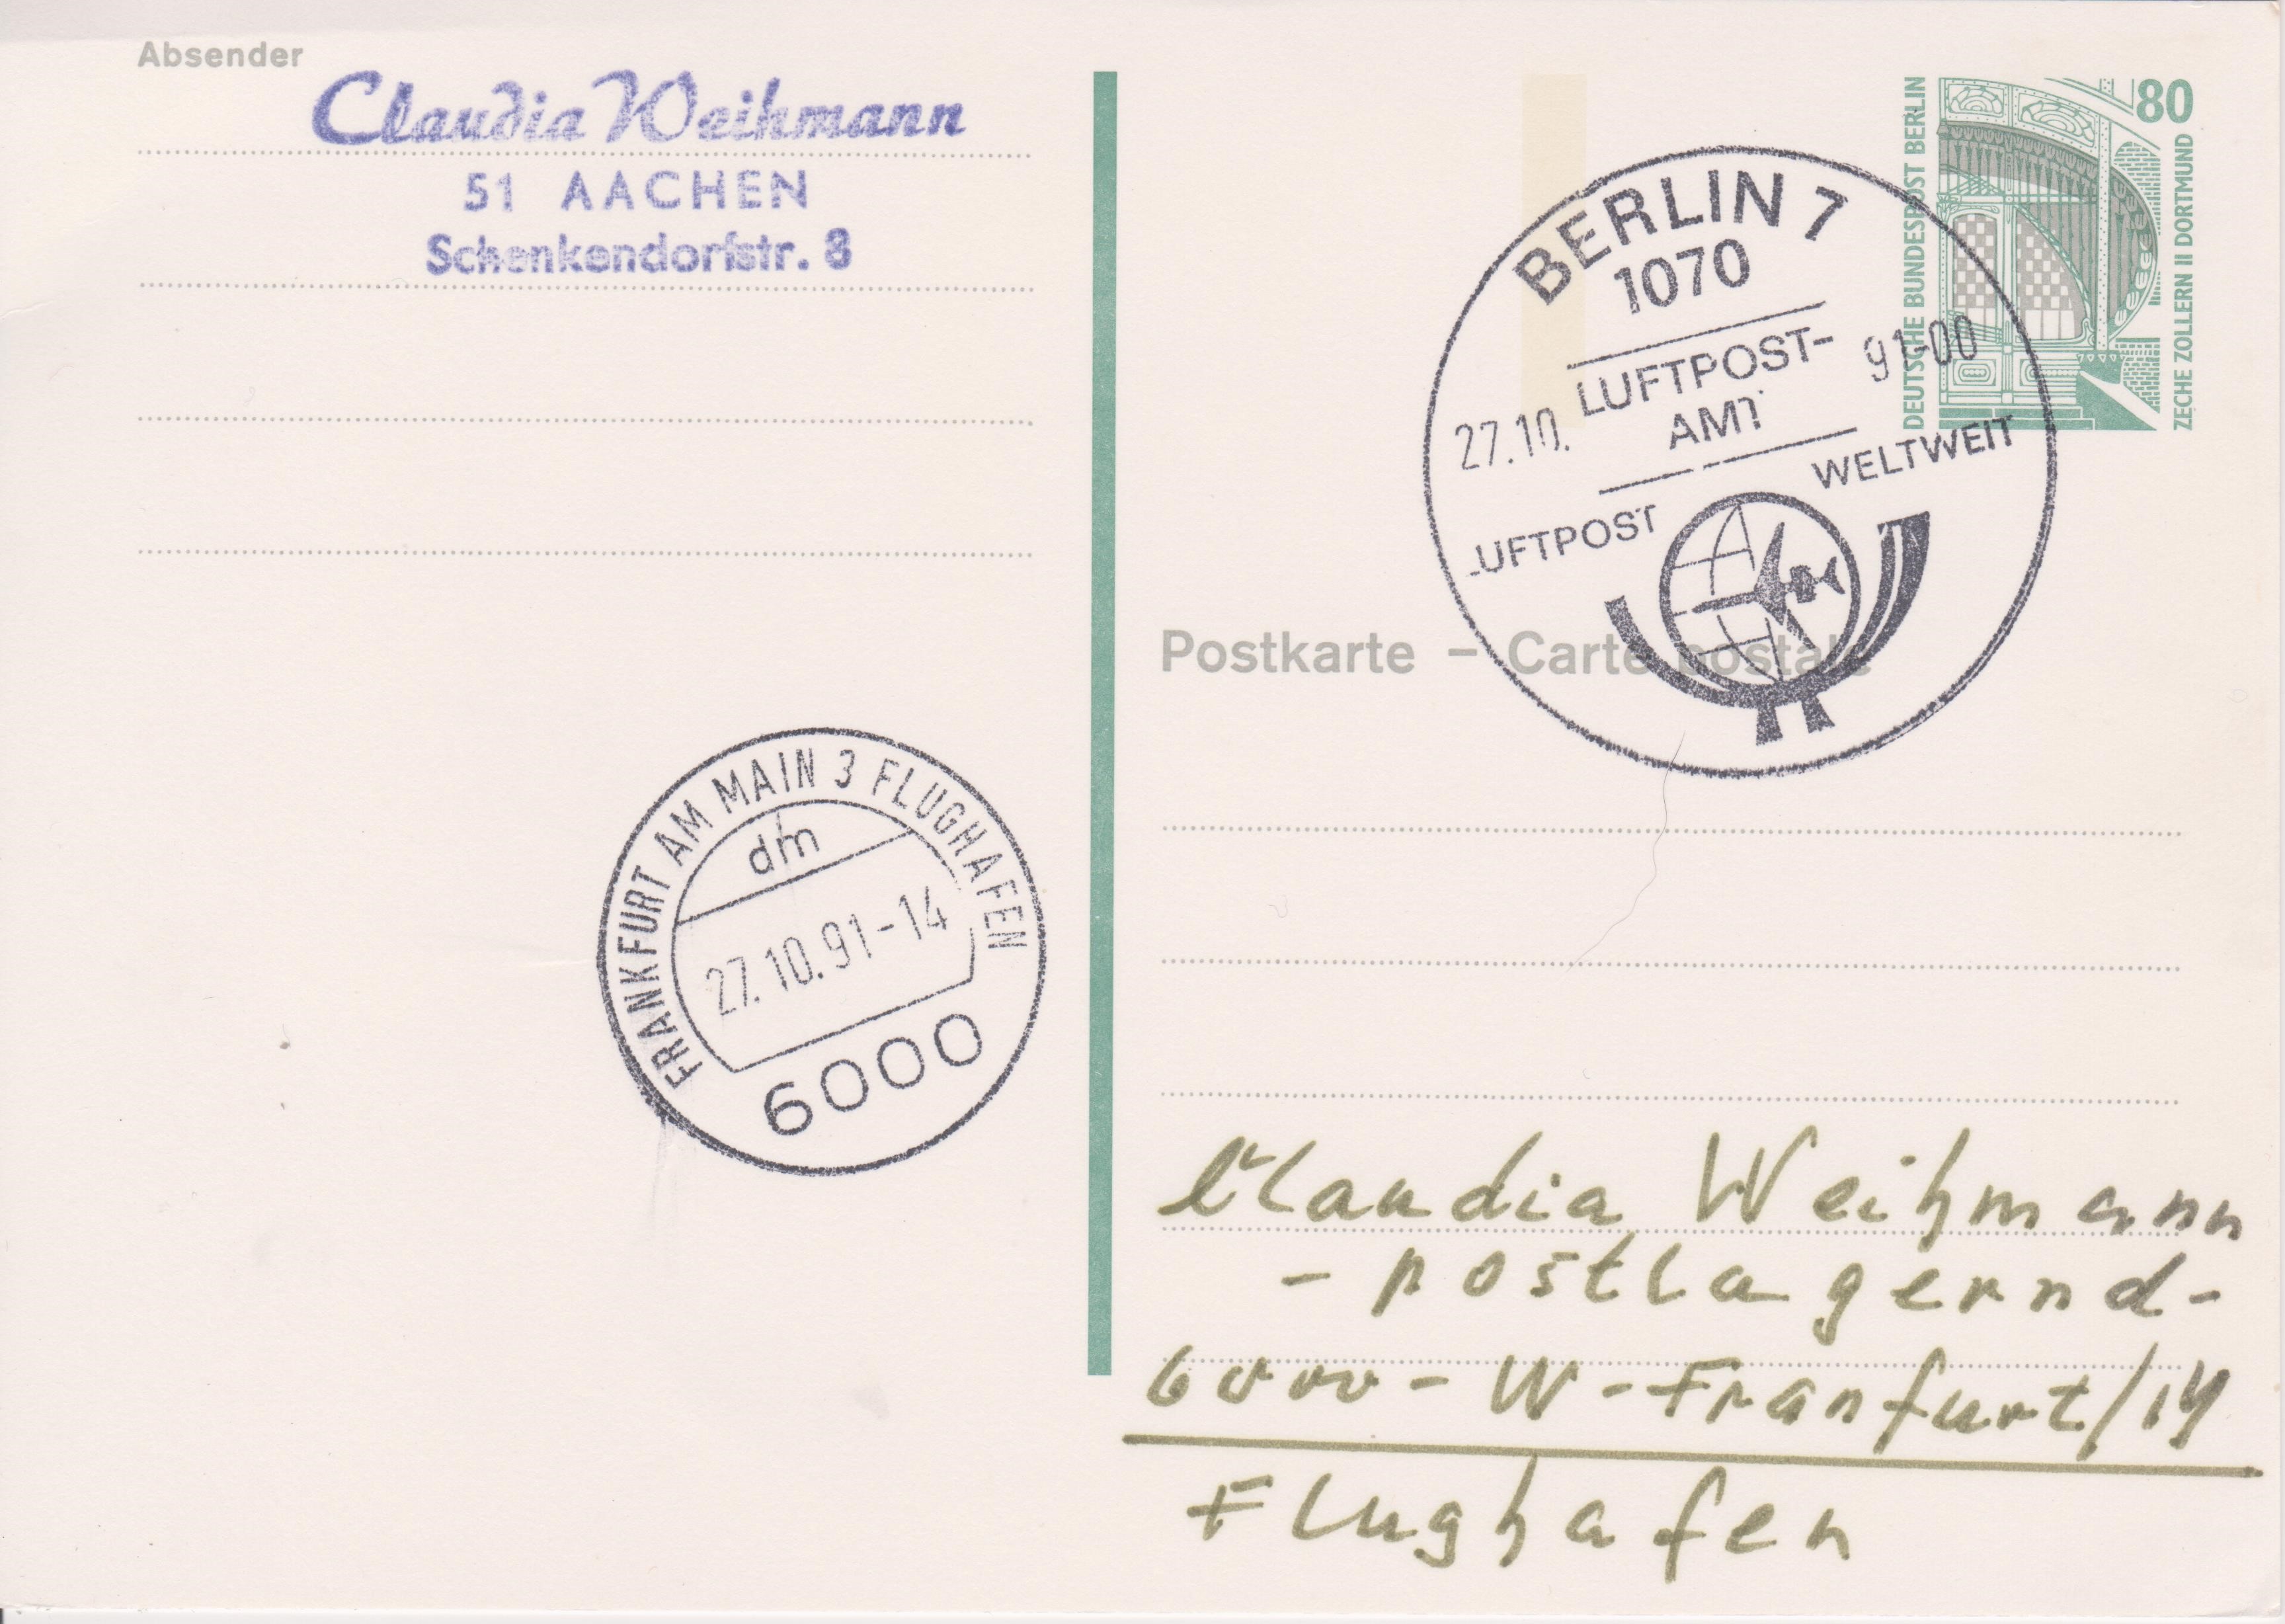 Absender
Claudia Weihmann
51 AACHEN
Schenkendorfstr. 8
80
DEUTSCHE BUNDESPOST BERLIN
ZECHE ZOLLERN II DORTMUND
BERLIN 7
1070
LUFTPOST-
AMT
27.10. 91-00
LUFTPOST WELTWEIT
Postkarte – Carte postale
FRANKFURT AM MAIN 3 FLUGHAFEN
dm
27.10.91-14
6000
Claudia Weihmann
- postlagernd-
6000 - W - Franfurt/M
Flughafen